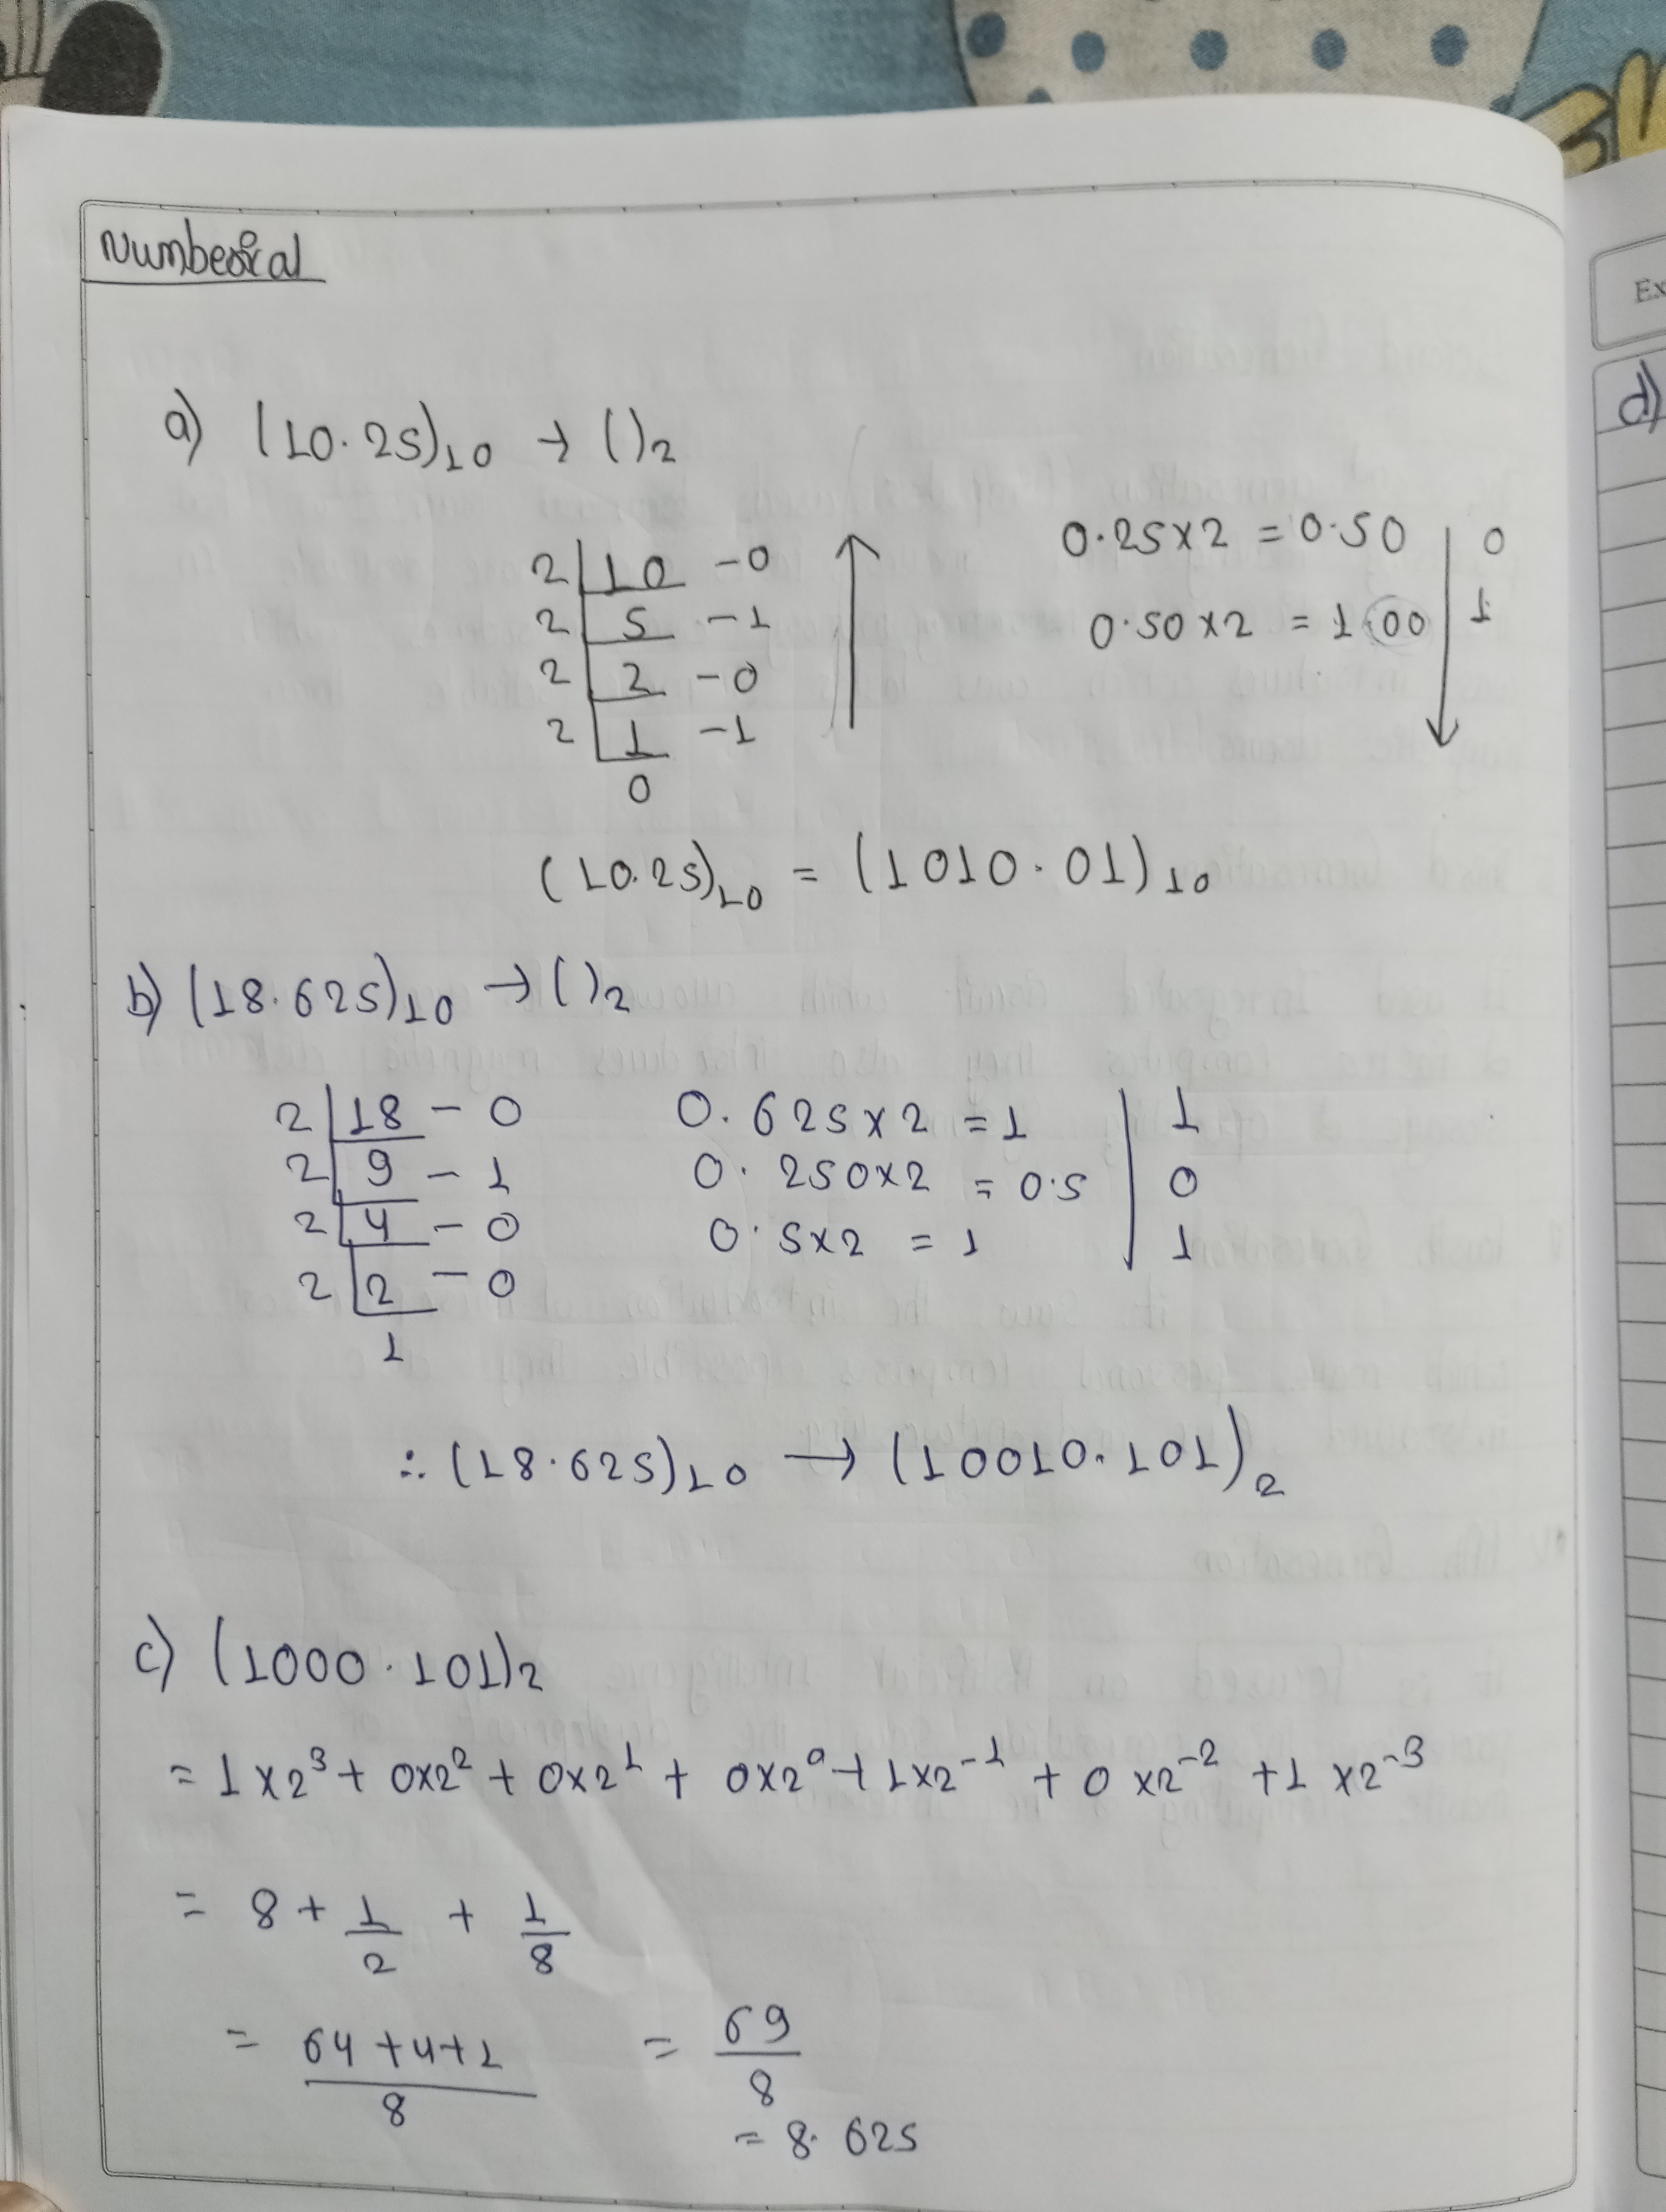 Numberical
Ex
d)
a) (10.25)10 → ()2
2 | 10 - 0
2 | 5 - 1
2 | 2 - 0
2 | 1 - 1
0
0.25x2 = 0.50 | 0
0.50x2 = 1.00 | 1
(10.25)10 = (1010.01)10
b) (18.625)10 → ()2
2 | 18 - 0
2 | 9 - 1
2 | 4 - 0
2 | 2 - 0
1
0.625x2 = 1 | 1
0.250x2 = 0.5 | 0
0.5x2 = 1 | 1
∴ (18.625)10 → (10010.101)2
c) (1000.101)2
= 1x2³ + 0x2² + 0x2¹ + 0x2⁰ + 1x2⁻¹ + 0x2⁻² + 1x2⁻³
= 8 + 1/2 + 1/8
= 64+4+1/8 = 69/8
= 8.625